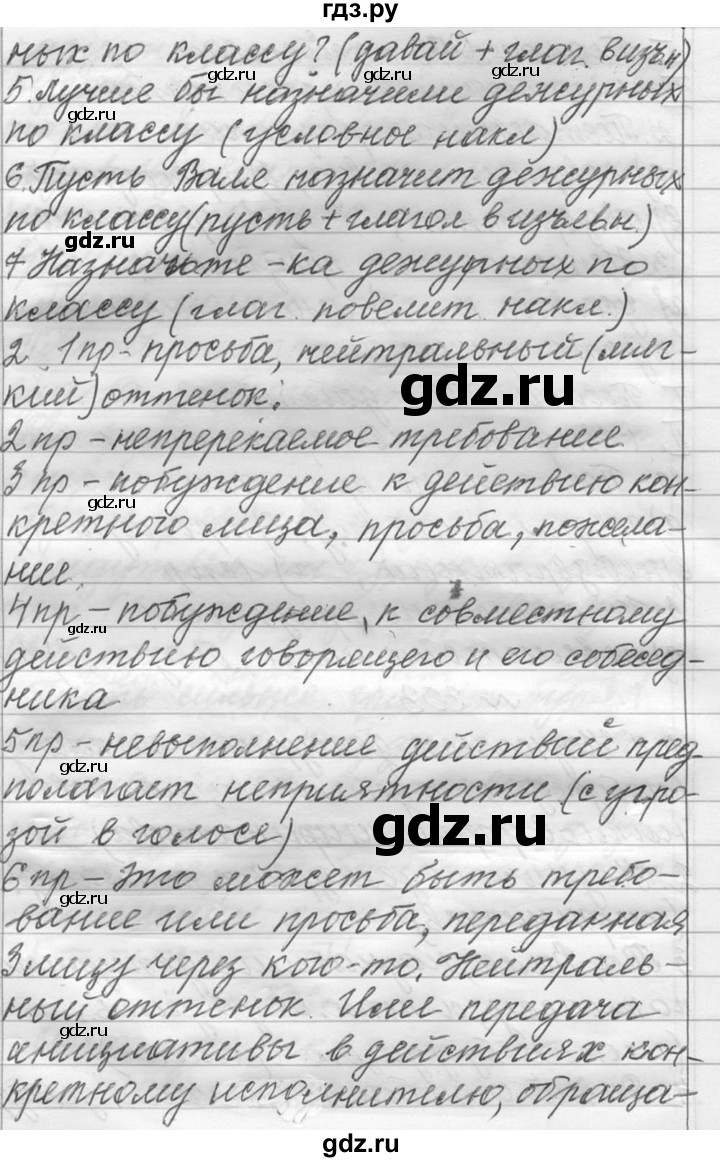 гдз.ру
ных по классу? (давай + глаг. в изъ.н)
gdz.ru
5. Лучше бы назначили дежурных
по классу (условное накл)
gdz.ru
6. Пусть Валя назначит дежурных
по классу (пусть + глагол в изъявн.)
gdz.ru
7 Назначьте-ка дежурных по
классу (глаг. повелит. накл.)
gdz.ru
2. 1 пр - просьба, нейтральный (мяг-
кий) оттенок;
gdz.ru
2 пр - непререкаемое требование
gdz.ru
3 пр - побуждение к действию кон-
кретного лица, просьба, пожела-
ние.
gdz.ru
4 пр - побуждение к совместному
gdz.ru
действию говорящего и его собесед-
ника
5 пр - невыполнение действий пред-
gdz.ru
полагает неприятности (с угро-
зой в голосе)
gdz.ru
6 пр - Это может быть требо-
gdz.ru
вание или просьба, переданная
3 лицу через кого-то. Нейтраль-
gdz.ru
ный оттенок. Или передача
gdz.ru
инициативы в действиях кон-
кретному исполнителю, обраща-
gdz.ru
gdz.ru